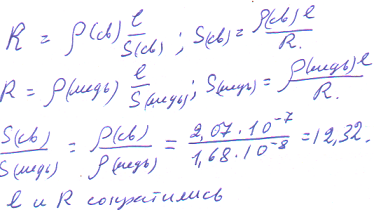 R = ρ(св) l/S(св) ; S(св) = ρ(св) l/R.
R = ρ(медь) l/S(медь) ; S(медь) = ρ(медь) l/R.
S(св)/S(медь) = ρ(св)/ρ(медь) = 2,07·10⁻⁷/1,68·10⁻⁸ = 12,32.
l и R сократились